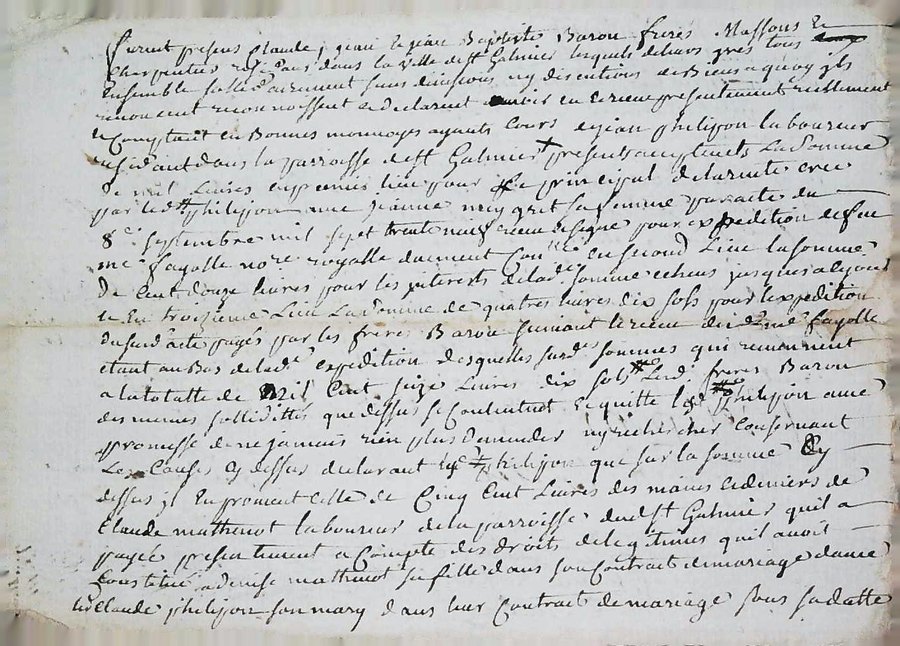 furent presens Claude, jean et jean Baptiste Baron freres Massons et
Charpentier residans dans la ville de st Galmier lesquels de leurs grés tous
ensemble sollidairement sans divisions ny discutions de Biens a quoy ils
renoncent reconnoissent et declarent avoir eu et receu presentement reellement
et Comptant en Bonnes monnoyes ayants Cours de jean philipon laboureur
residant dans la parroisse de st Galmier present acceptant La somme
De mil Livres en premier lieu pour le principal de la rente creé
par led philipon avec jeanne neygret sa femme par acte du
8e septembre mil sept trente neuf receu et signé pour expedition de feu
me fayolle nore royalle duement Conlle en second Lieu la somme
De Cent douze livres pour les interets de lade somme echeus jusques a ce jour
et En troizieme Lieu La somme de quatres livres dix sols pour l'expedition
Du susd acte payés par les freres Baron suivant le receu dud me fayolle
etant au Bas de lade expedition desquelles susdes sommes qui reviennent
a la totalle de Mil Cent seize Livres dix sols Lesd freres Baron
des memes solliditées que dessus se Contentent et quitte led philipon avec
promesse de ne jamais rien plus demander ny rechercher Conservant
Les Causes Cy dessus declarant led philipon que sur la somme Cy
dessus il En provient Celle de Cinq Cent Livres des mains et deniers de
Claude mathenot laboureur de la parroisse dud st Galmier qu'il a
payée presentement a Compte des droits de legitimes qu'il avoit
Constitué a denise mathenot sa fille dans son Contrat de mariage avec
Claude philipon son mary dans leur Contract de mariage sous sa datte